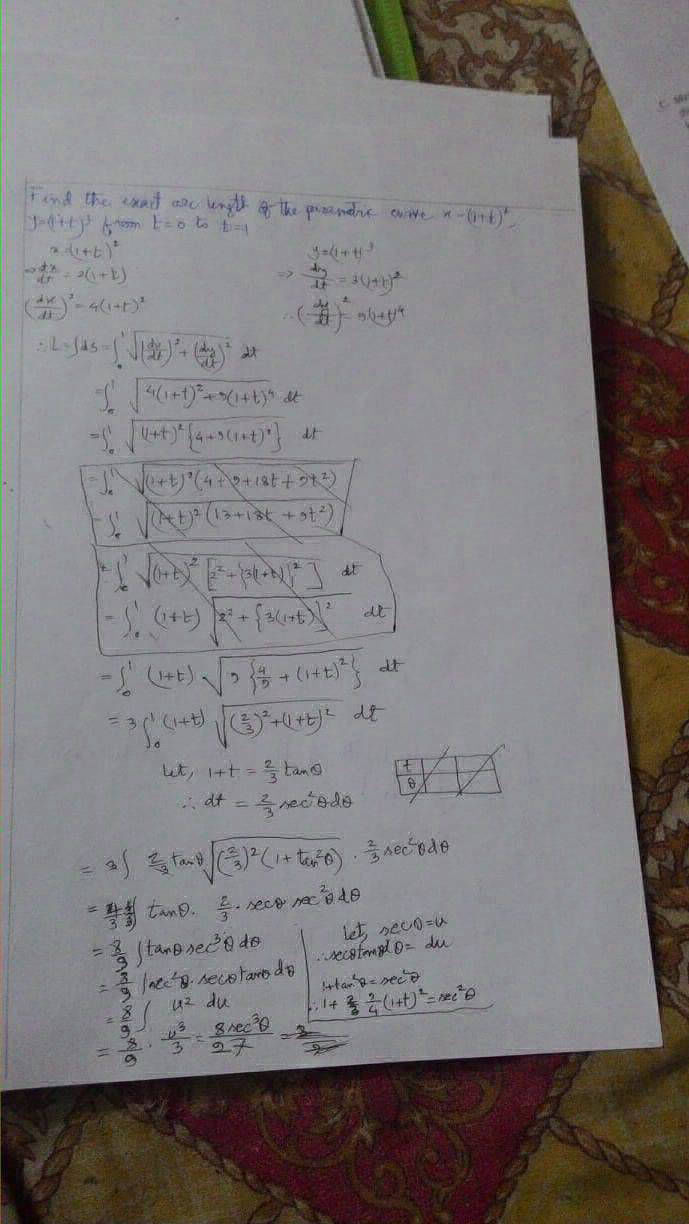 Find the exact arc length of the parametric curve x = (1+t)²,
y=(1+t)³ from t=0 to t=1
x=(1+t)²
⇒ dx/dt = 2(1+t)
(dx/dt)² = 4(1+t)²
y=(1+t)³
⇒ dy/dt = 3(1+t)²
∴ (dy/dt)² = 9(1+t)⁴
∴ L = ∫ds = ∫₀¹ √((dx/dt)² + (dy/dt)²) dt
= ∫₀¹ √(4(1+t)² + 9(1+t)⁴) dt
= ∫₀¹ √((1+t)² {4+9(1+t)²}) dt
= ∫₀¹ √((1+t)² (4+9+18t+9t²))
= ∫₀¹ √((1+t)² (13+18t+9t²))
= ∫₀¹ √((1+t)² [2²+{3(1+t)}²]) dt
= ∫₀¹ (1+t) √(2²+{3(1+t)}²) dt
= ∫₀¹ (1+t) √(9{4/9 + (1+t)²}) dt
= 3∫₀¹ (1+t) √((2/3)²+(1+t)²) dt
Let, 1+t = 2/3 tanθ
∴ dt = 2/3 sec²θdθ
t
θ
= 3∫ 2/3 tanθ √((2/3)²(1+tan²θ)) · 2/3 sec²θdθ
= tanθ · 2/3 · secθ sec²θdθ
= 8/9 ∫tanθ sec³θdθ
= 8/9 ∫sec²θ · secθtanθdθ
= 8/9 ∫ u² du
= 8/9 · u³/3 = 8sec³θ/27 =
Let, secθ = u
∴ secθtanθdθ = du
1+tan²θ = sec²θ
∴ 1+ 9/4 (1+t)² = sec²θ